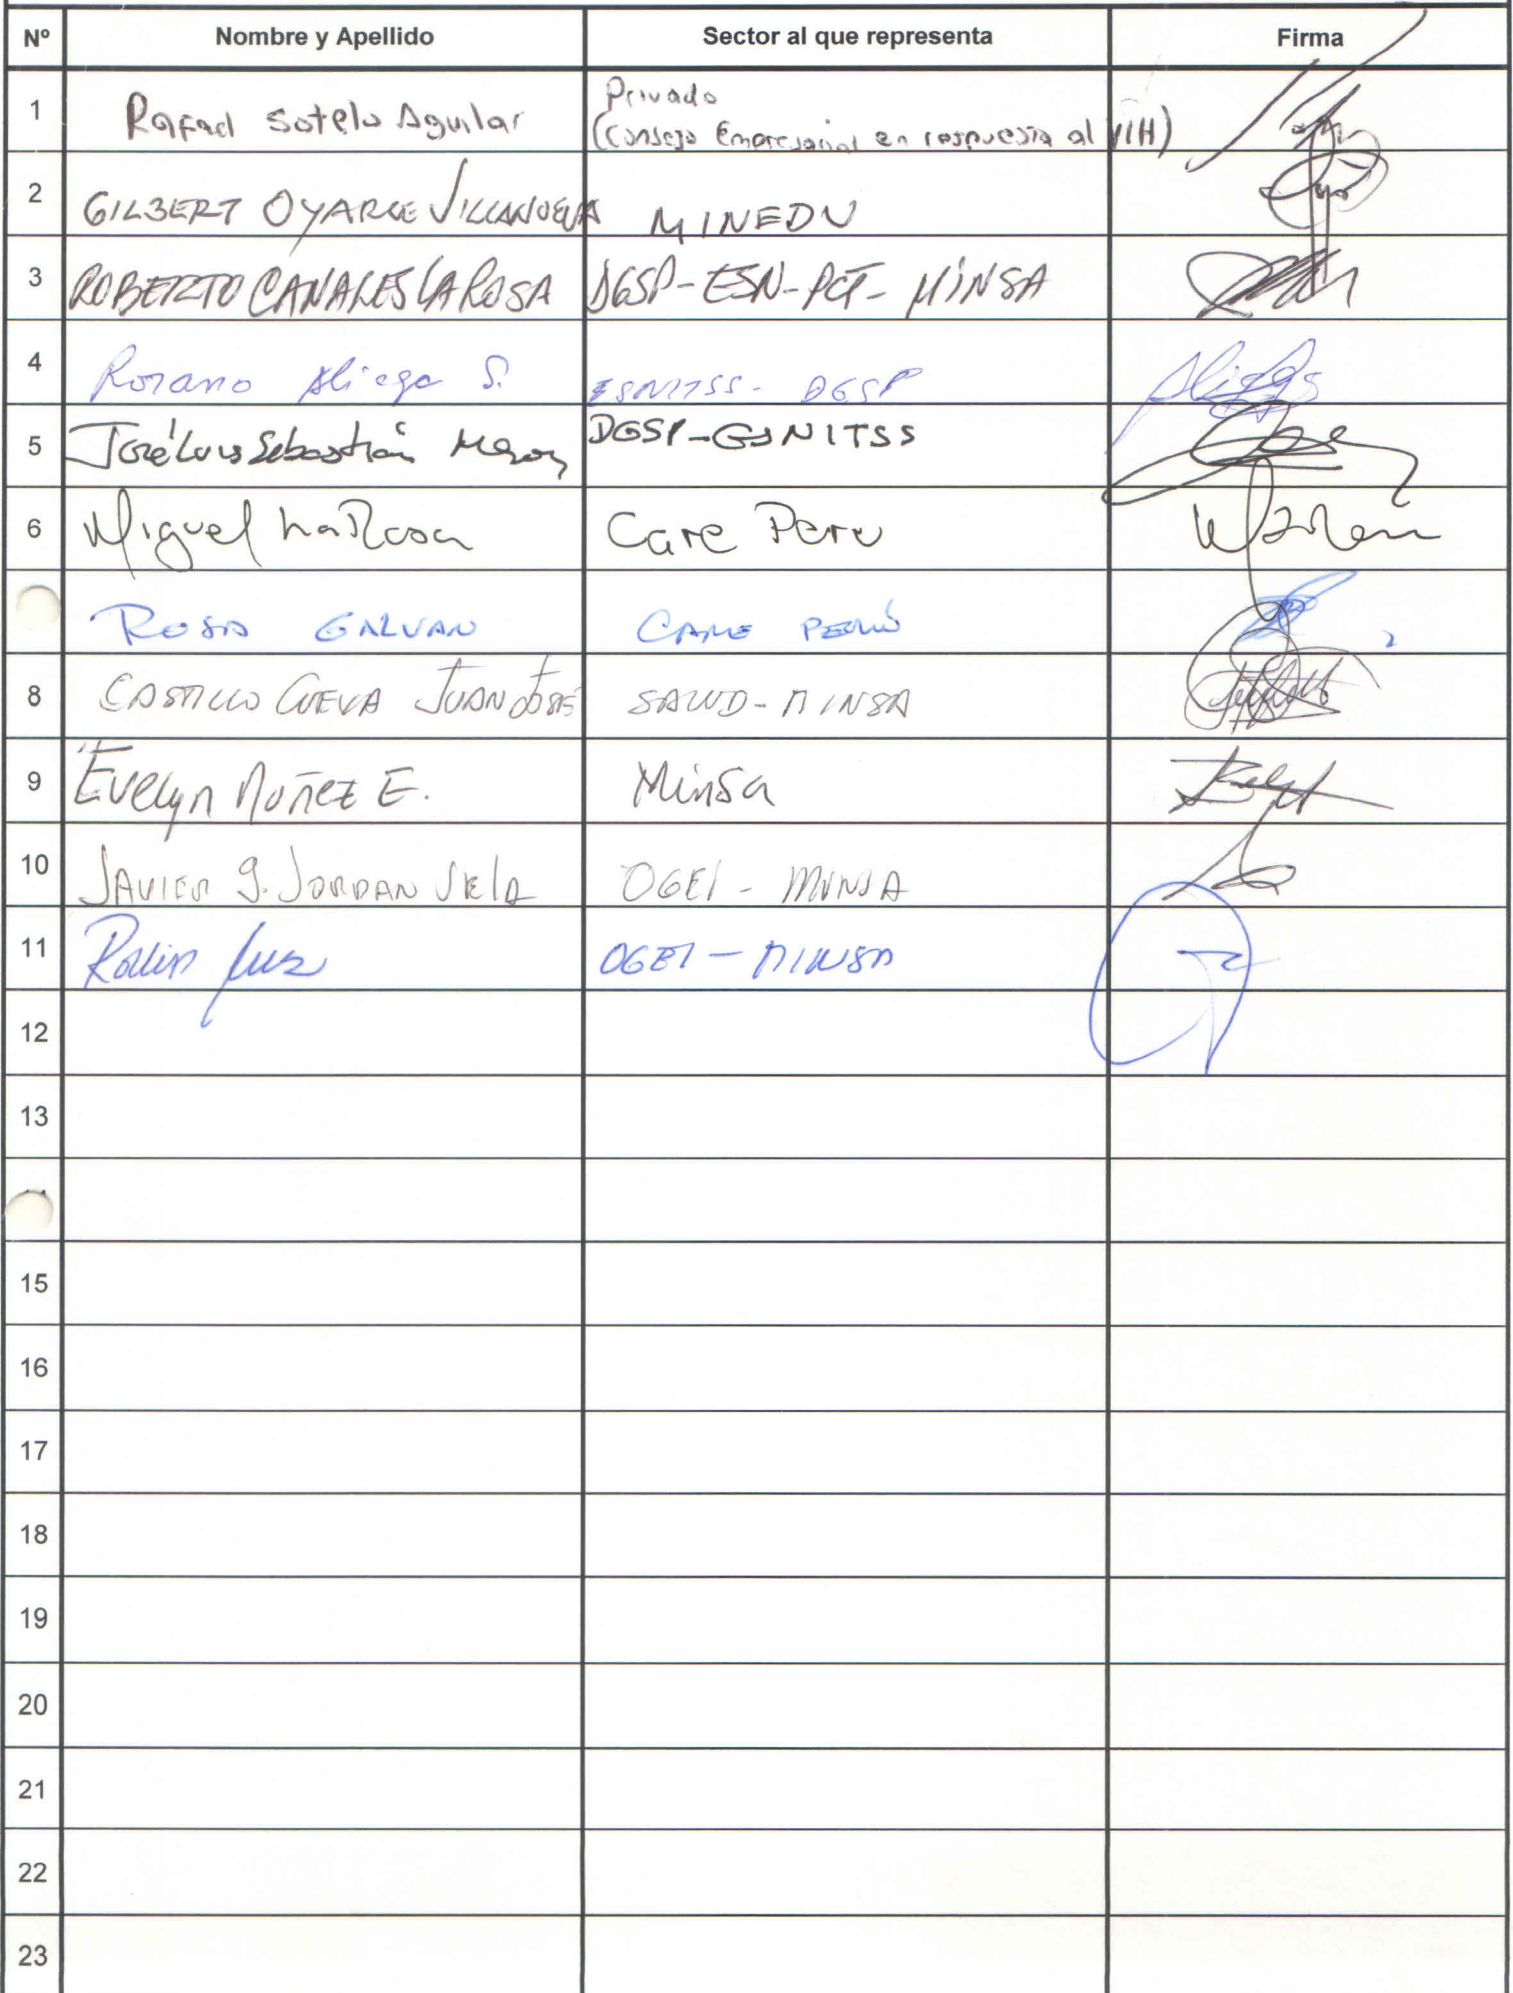 Nº Nombre y Apellido Sector al que representa Firma
1 Rafael Sotelo Aguilar Privado
(Consejo Empresarial en respuesta al VIH)
2 GILBERT OYARCE VILLANUEVA MINEDU
3 ROBERTO CANALES LA ROSA DGSP-ESN-PCT-MINSA
4 Aliaga S. ESNITSS - DGSP
5 José Luis Sebastián DGSP-ESNITSS
6 Miguel La Rosa Care Peru
ROSA GALVAN CARE PERÚ
8 CASTILLO CUEVA JUAN JOSÉ SALUD-MINSA
9 Evelyn Nuñez E. Minsa
10 JAVIER JORDAN VELA OGEI - MINSA
11 OGEI - MINSA
12
13
15
16
17
18
19
20
21
22
23